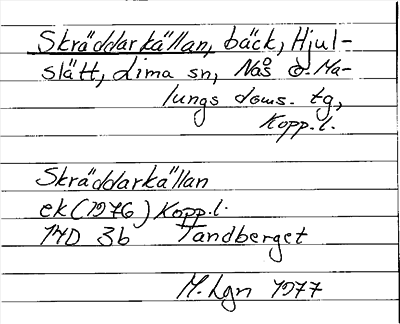 Skräddarkällan, bäck, Hjul-
slätt, Lima sn, Nås o. Ma-
lungs doms. tg,
Kopp. l.
Skräddarkällan
ek (1976) Kopp. l.
14D 3b Tandberget
M. Lgn 1977